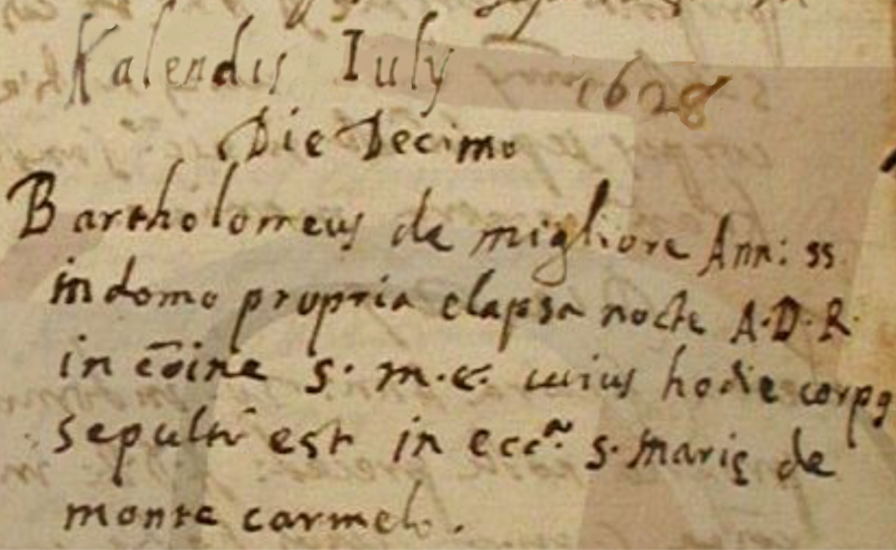 Kalendis July 1628
Die Decimo
Bartholomeus de migliore Ann: 55
in domo propria elapsa nocte A.D.R.
in cōine S. m. e. cuius hodie corpꝯ
sepultū est in eccᵃ S. Marię de
monte carmelo.